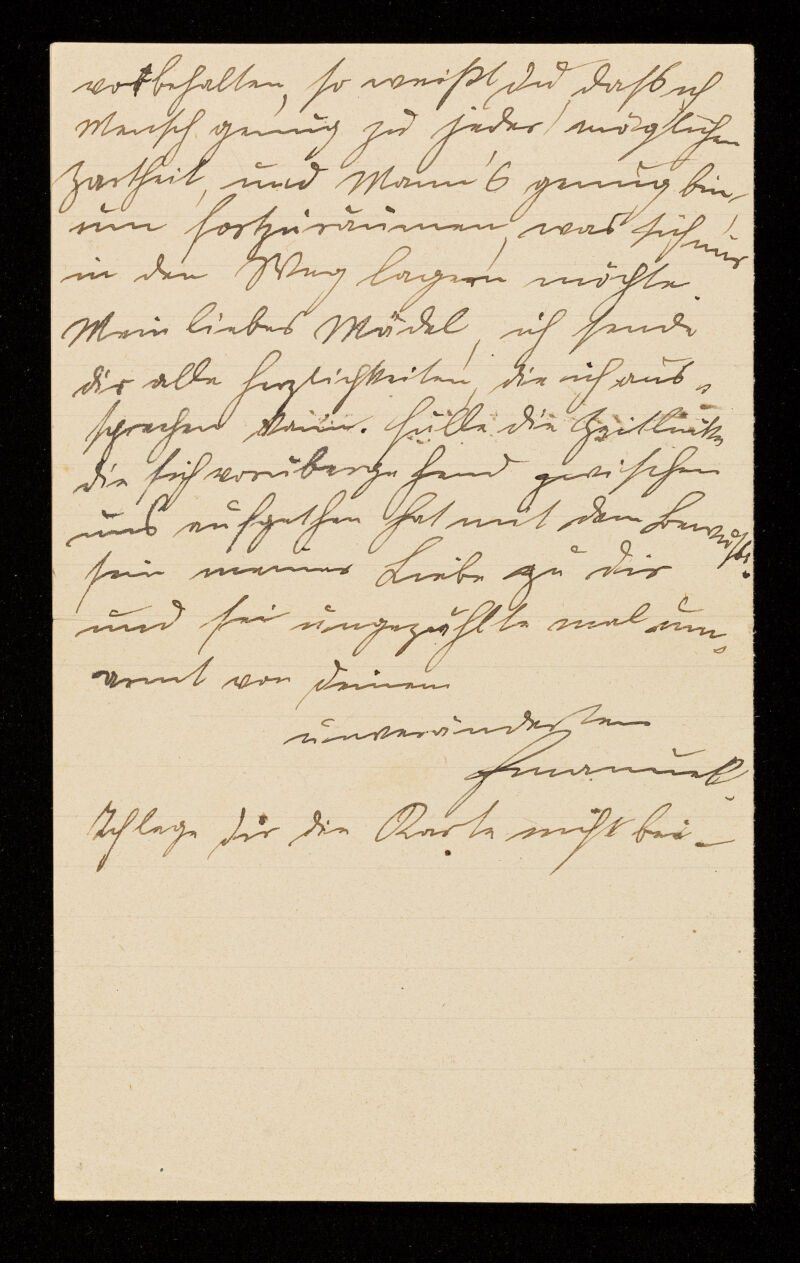 vorbehalten, so weißt Du, daß ich
Mensch genug zu jeder möglichen
Zartheit, und Mann's genug bin,
um fortzuräumen, was sich nur
in den Weg lagern möchte.
Mein liebes Mädel, ich sende
dir alle Herzlichkeiten, die ich aus-
sprechen kann. Fülle die Zeitlücke
die sich vorübergehend zwischen
uns aufgethan hat mit dem Bewußt-
sein meiner Liebe zu dir
und sei ungezählte mal um-
armt von deinem
unveränderten
Emanuel.
Ich lege dir die Karte nicht bei.